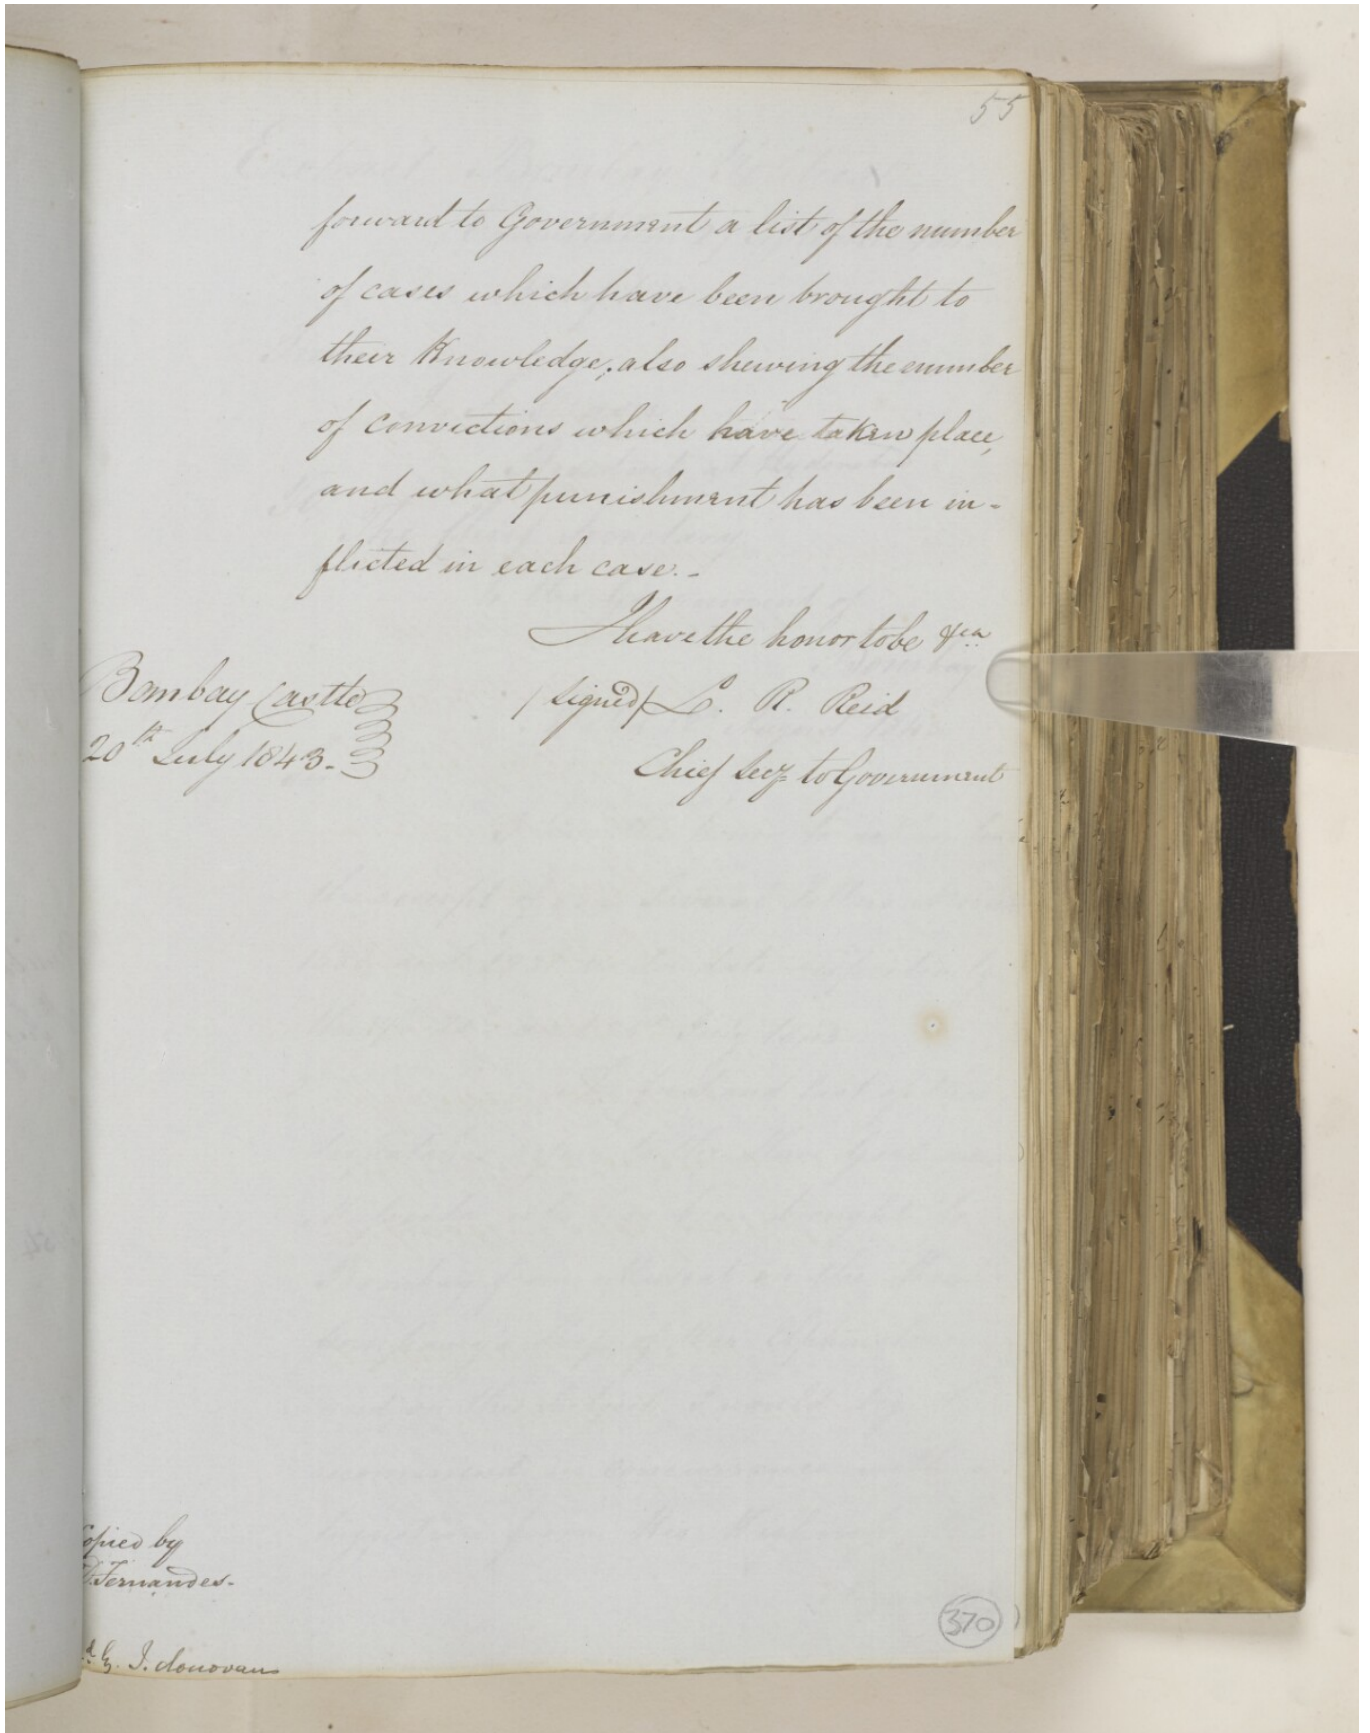 55
forward to Government a list of the number
of cases which have been brought to
their Knowledge; also shewing the number
of convictions which have taken place,
and what punishment has been in-
flicted in each case.-
I have the honor to be &ca
Bombay Castle
20th July 1843.-
/signed/ L. R. Reid
Chief Secy to Government
Copied by
Fernandes.
J. donovan
370